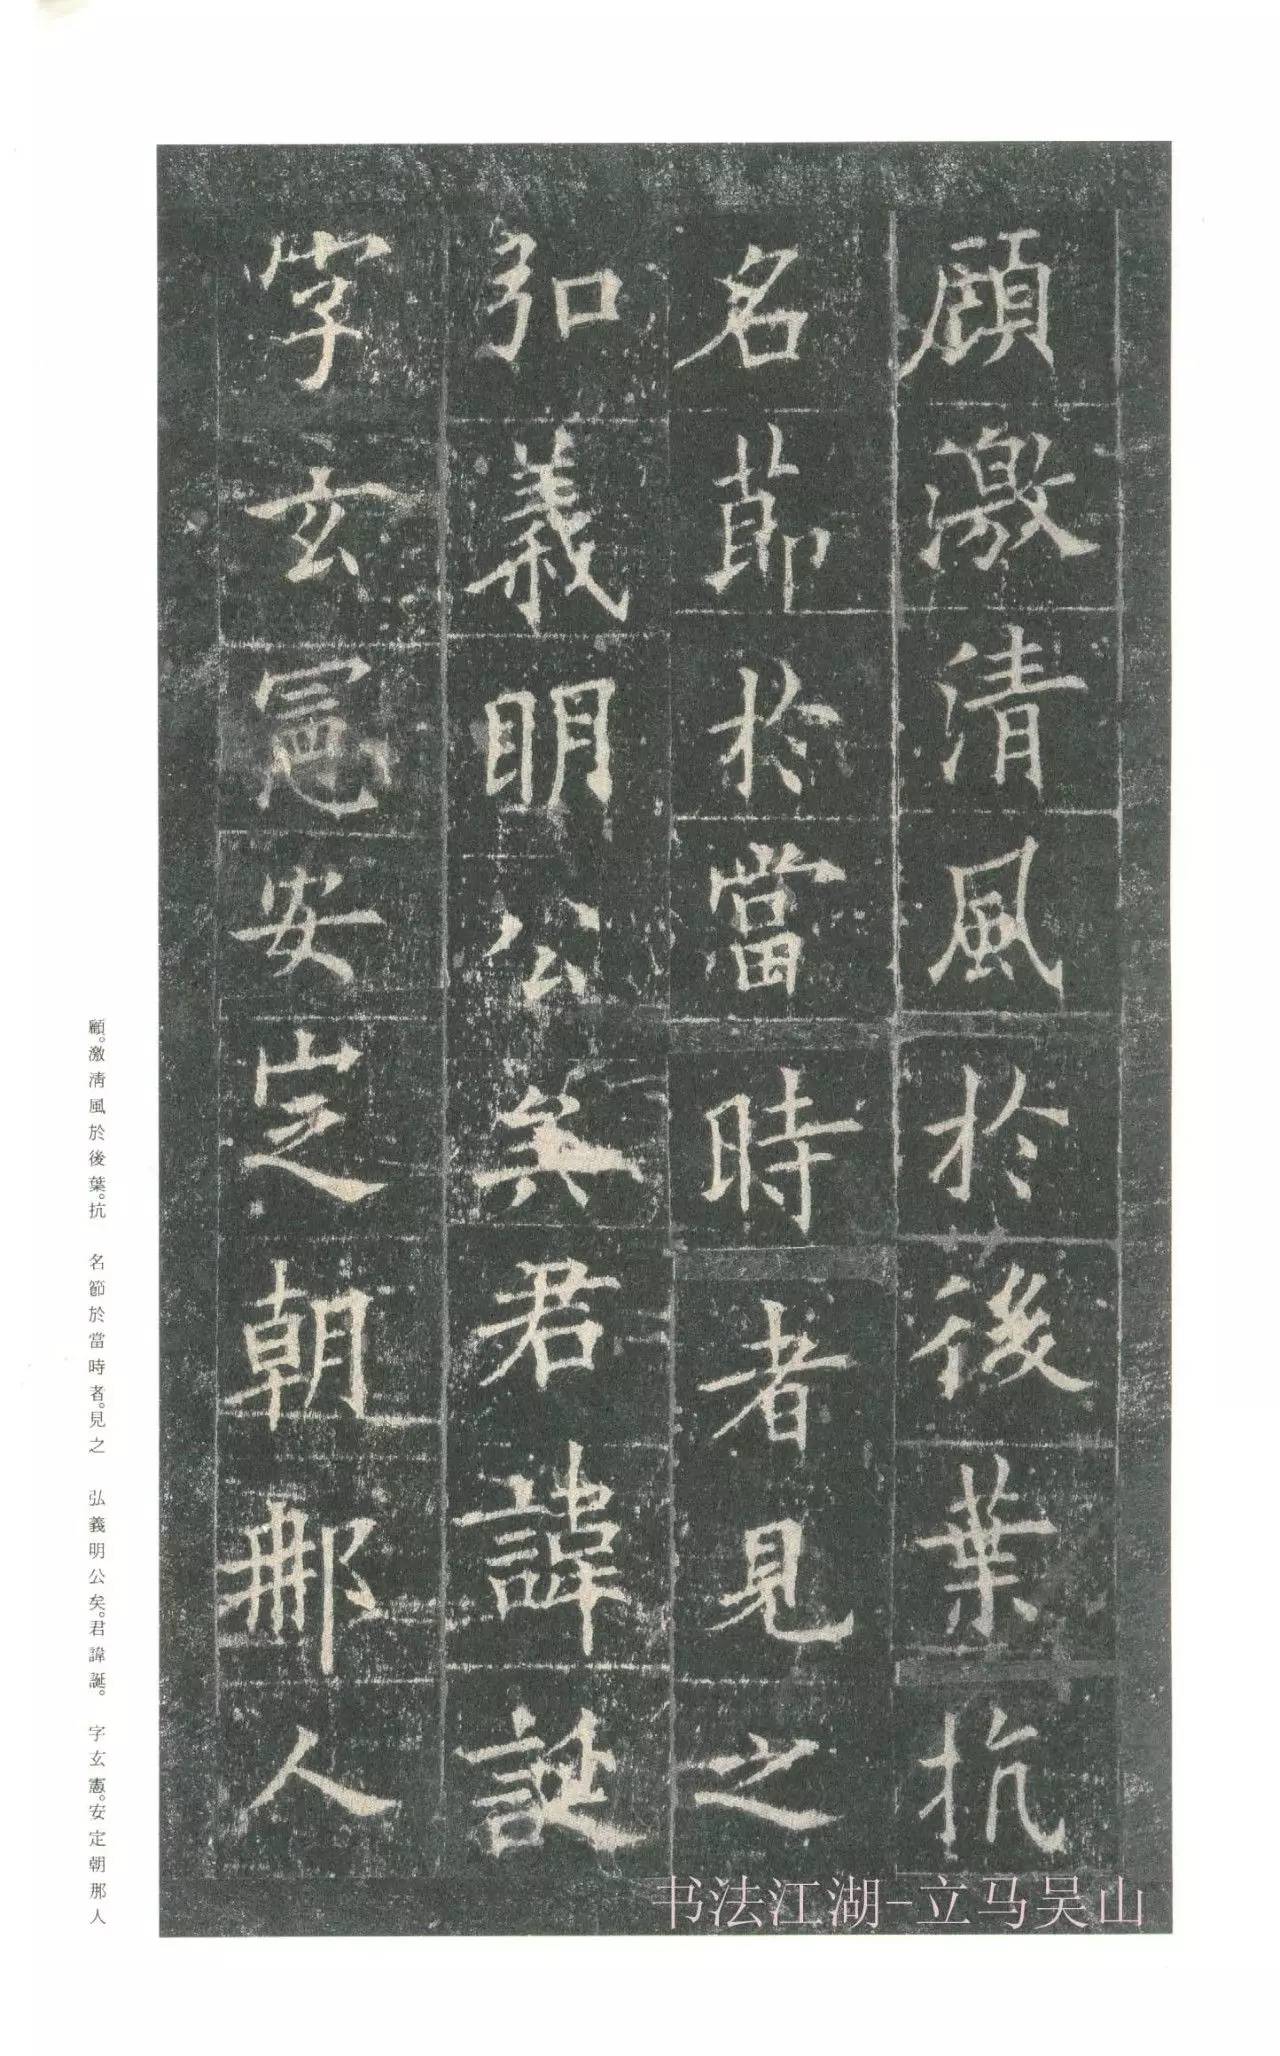 顧激清風於後葉抗
名節於當時者見之
弘義明公矣君諱誕
字玄憲安定朝那人
顧。激清風於後葉。抗 名節於當時者。見之 弘義明公矣。君諱誕。 字玄憲。安定朝那人
书法江湖-立马吴山